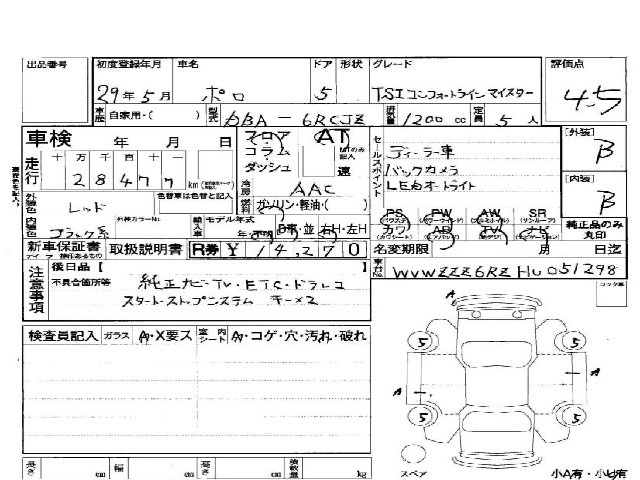 出品番号 初度登録年月 車名 ドア 形状 グレード 評価点
29年5月 ポロ 5 TSIコンフォートラインマイスター 4.5
車歴 自家用・( ) 型式 DBA-6RCJZ 排気量 1200 cc 定員 5人
車検 年 月 日 フロア コラム ダッシュ AT 速 セールスポイント ディーラー車 [外装] B
走行 十 万 千 百 十 一 28477 km 冷房 AAC バックカメラ
外装色 レッド 色替車は色替と記入 燃料 ガソリン・軽油・( ) LEDオートライト [内装] B
内装色 ブラック系 外装カラーNo. 輸入車 モデル年式 年 D車・並 右H・左H
PS PW AW SR
カワ AB TV ナビ 純正品のみ丸印
新車保証書 取扱説明書 R券 ¥14,270 名変期限 月 日迄
注意事項 後日品〔 〕 車台No. WVWZZZ6RZHU051298
不具合箇所等 純正ナビ・TV・ETC・ドラレコ
スタートストップシステム キー×2
検査員記入 ガラス A・X要ス 室内シート A・コゲ・穴・汚れ・破れ
A
5 5
A A
5 5
スペア
長さ cm 幅 cm 高さ cm 積載量 kg 小A有・小U有